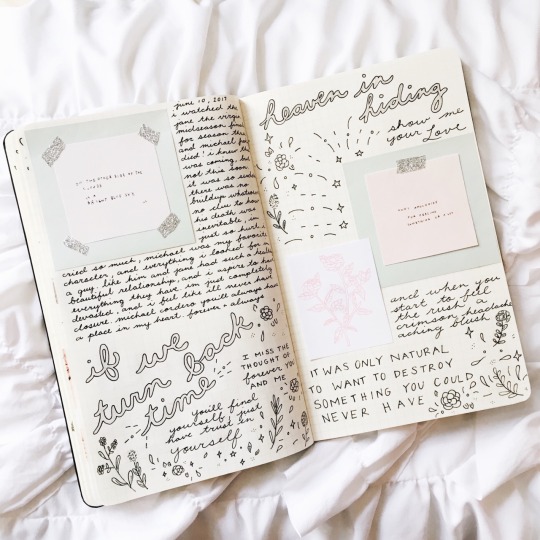 june 10, 2017
i watched the
jane the virgin
midseason final
for season th
and michael f
died! i knew th
was coming, but
not this soon
it was so sud
there was no
buildup whatso
no clue to how
his death was
inevitable. i
just so hurt. i
cried so much. michael was my favorite
character, and everything i looked for in
a guy. like him and jane had such a real
beautiful relationship, and i aspire to ha
everything they have. im just completely
devasted, and i feel like ill never have
closure. michael cordero you'll always have
a place in my heart. forever + always
ON THE OTHER SIDE OF THE
CLOUDS
IS A
BRIGHT BLUE SKY
if we
turn back
time
you'll find
yourself just
have trust in
yourself
I MISS THE
THOUGHT OF
FOREVER YOU
AND ME
heaven in
hiding
show me
your love
DON'T APOLOGIZE
FOR FEELING
SOMETHING SO
and when you
start to feel
the rush, a
crimson headache
aching blush
IT WAS ONLY NATURAL
TO WANT TO DESTROY
SOMETHING YOU COULD
NEVER HAVE